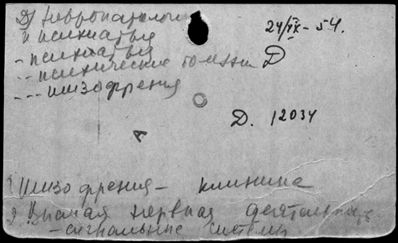 д) Невропатология
и психиатрия
24/IX - 54.
- психиатрия
- - психические болезни Д
- - - шизофрения
Д. 12034
А
1 Шизофрения - клиника
2 Высшая нервная деятельность
- сигнальные системы